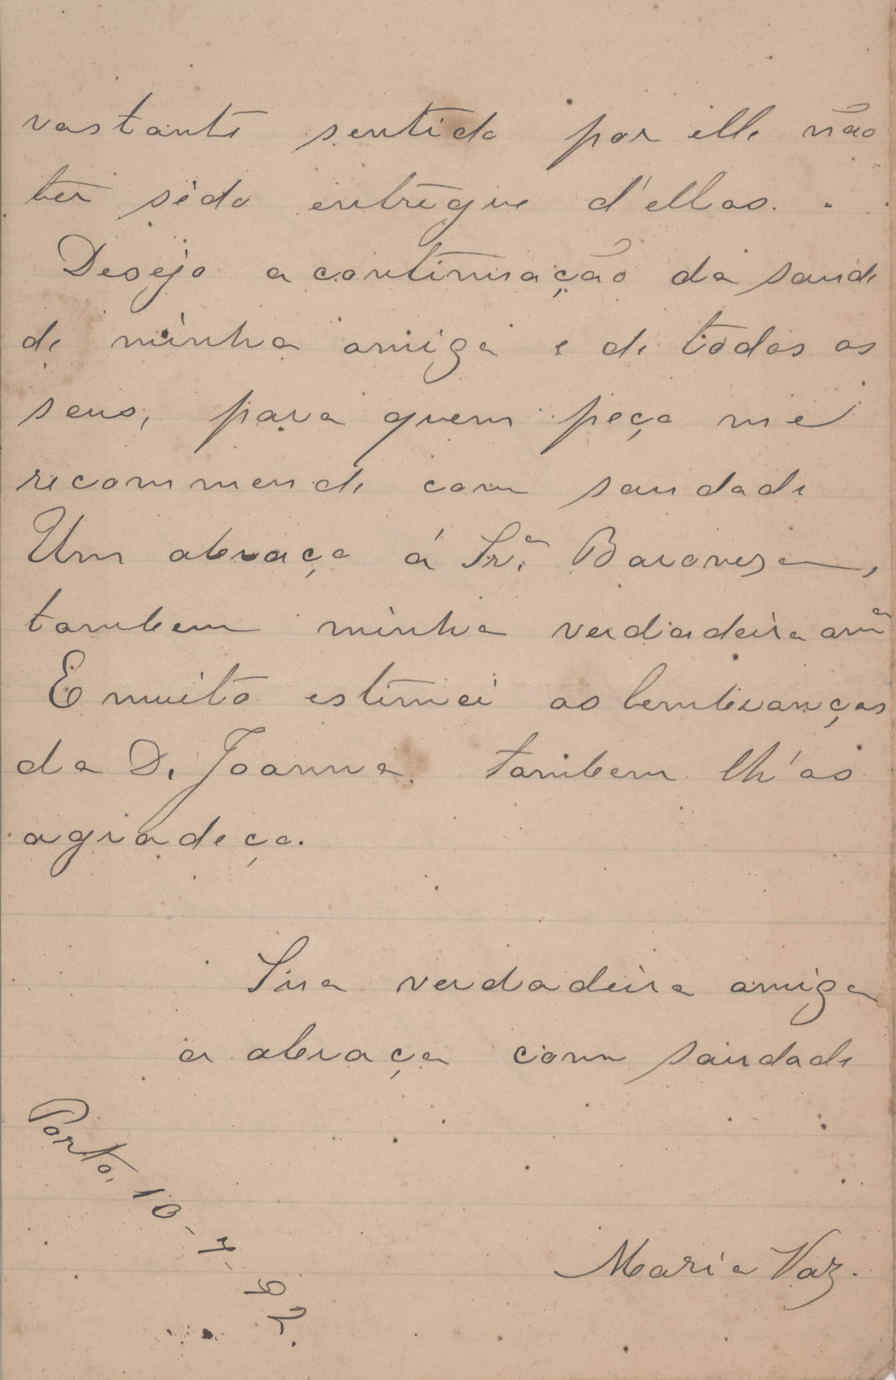 vastante sentido por elle não
ter sido entregue d'ellas.
Desejo a continuação da saude
de minha amiga e de todos os
seus, para quem peço me
recommende com saudade
Um abraço á Srª Baroneza,
tambem minha verdadeira amª
E muito estimei as lembranças
da D. Joanna. tambem lh'as
agradeço.
Sua verdadeira amiga
a abraça com saudade
Porto, 10-
Maria Vaz.